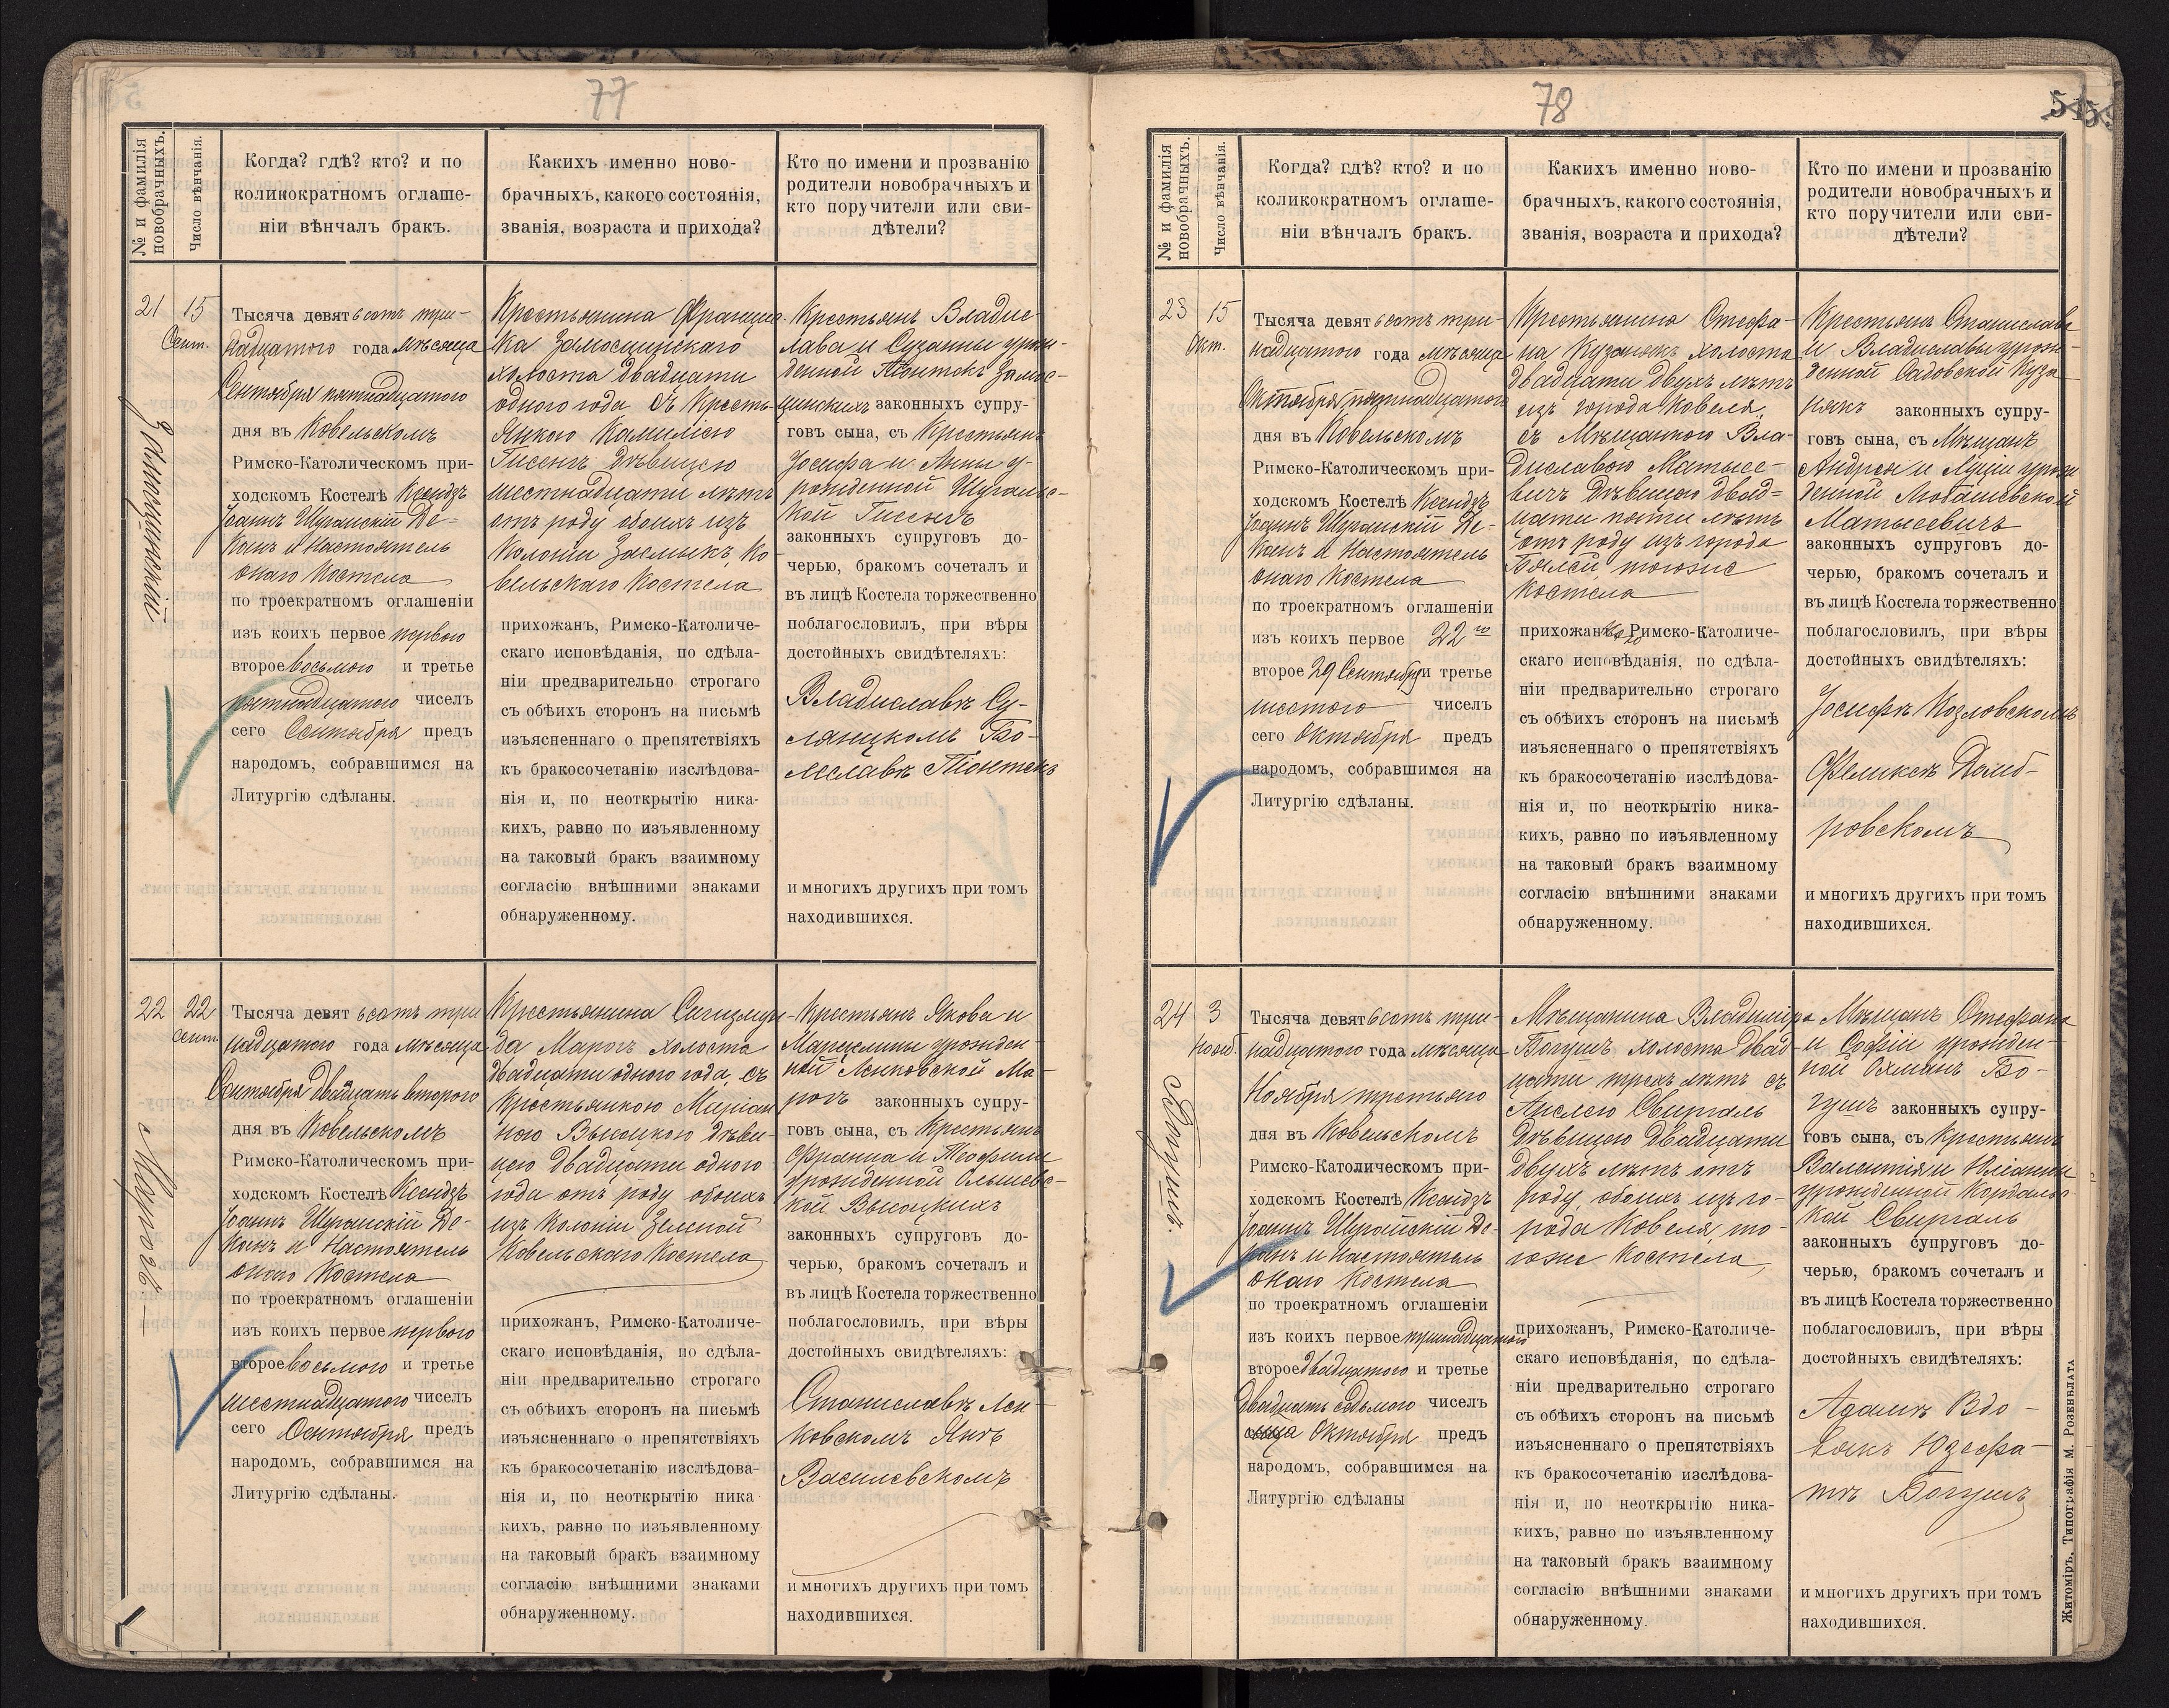 77
№ и фамилія новобрачныхъ.
Число вѣнчанія.
Когда? гдѣ? кто? и по
коликократномъ оглаше-
ніи вѣнчалъ бракъ.
Какихъ именно ново-
брачныхъ, какого состоянія,
званія, возраста и прихода?
Кто по имени и прозванію
родители новобрачныхъ и
кто поручители или сви-
дѣтели?
21
Замощинскій
15
Сент.
Тысяча девятьсотъ три-
надцатого года мѣсяца
Сентября пятнадцатого
дня въ Ковельскомъ
Римско-Католическомъ при-
ходскомъ Костелѣ Ксендзъ
Іоаннъ Шуманскій Де-
канъ и Настоятель
онаго Костела
по троекратномъ оглашеніи
изъ коихъ первое первого
второе восьмого и третье
пятнадцатого чиселъ
сего Сентября предъ
народомъ, собравшимся на
Литургію сдѣланы.
Крестьянина Францис-
ка Замощинскаго
холоста двадцати
одного года, съ Кресть-
янкою Камиліею
Гисенгъ дѣвицею
шестнадцати лѣтъ
отъ роду обоихъ изъ
Колоніи Засмыкъ, Ко
вельскаго Костела
прихожанъ, Римско-Католиче-
скаго исповѣданія, по сдѣла-
ніи предварительно строгаго
съ обѣихъ сторонъ на письмѣ
изъясненнаго о препятствіяхъ
къ бракосочетанію изслѣдова-
нія и, по неоткрытію ника-
кихъ, равно по изъявленному
на таковый бракъ взаимному
согласію внѣшними знаками
обнаруженному.
Крестьянъ Владис-
лава и Сузанны урож-
денной Піонтекъ Замос-
щинскихъ законныхъ супру-
говъ сына, съ Крестьянъ
Іосифа и Анны у-
рожденной
законныхъ супруговъ до-
черью, бракомъ сочеталъ и
въ лицѣ Костела торжественно
поблагословилъ, при вѣры
достойныхъ свидѣтеляхъ:
Владиславѣ Су-
лянцкомъ Бо-
леславѣ Піонтекъ
и многихъ другихъ при томъ
находившихся.
22
Марогъ
22
Сент.
Тысяча девятьсотъ три
надцатого года мѣсяца
Сентября двадцать второго
дня въ Ковельскомъ
Римско-Католическомъ при-
ходскомъ Костелѣ Ксендзъ
Іоаннъ Шуманскій Де-
канъ и Настоятель
онаго Костела
по троекратномъ оглашеніи
изъ коихъ первое первого
второе восьмого и третье
шестнадцатого чиселъ
сего Сентября предъ
народомъ, собравшимся на
Литургію сдѣланы.
Крестьянина Сигизмун-
да Марогъ холоста
двадцати одного года, съ
Крестьянкою Маріан
ною Высоцкою дѣви-
цею двадцати одного
года отъ роду обоихъ
изъ Колоніи Зеленой
Ковельскаго Костела
прихожанъ, Римско-Католиче-
скаго исповѣданія, по сдѣла-
ніи предварительно строгаго
съ обѣихъ сторонъ на письмѣ
изъясненнаго о препятствіяхъ
къ бракосочетанію изслѣдова-
нія и, по неоткрытію ника
кихъ, равно по изъявленному
на таковый бракъ взаимному
согласію внѣшними знаками
обнаруженному.
Крестьянъ Якова и
Марцелины урожден-
ной Ленковской Ма-
рогъ законныхъ супру-
говъ сына, съ Крестьянъ
Франца и Теофили
урожденной Ольшевс-
кой Высоцкихъ
законныхъ супруговъ до-
черью, бракомъ сочеталъ и
въ лицѣ Костела торжественно
поблагословилъ, при вѣры
достойныхъ свидѣтеляхъ:
Станиславѣ Лен
ковскомъ Янѣ
Василевскомъ
и многихъ другихъ при томъ
находившихся.
78
№ и фамилія новобрачныхъ.
Число вѣнчанія.
Когда? гдѣ? кто? и по
коликократномъ оглаше-
ніи вѣнчалъ бракъ.
Какихъ именно ново-
брачныхъ, какого состоянія,
званія, возраста и прихода?
Кто по имени и прозванію
родители новобрачныхъ и
кто поручители или сви-
дѣтели?
23
15
Окт.
Тысяча девятьсотъ три-
надцатого года мѣсяца
Октября пятнадцатого
дня въ Ковельскомъ
Римско-Католическомъ при-
ходскомъ Костелѣ Ксендзъ
Іоаннъ Шуманскій Де-
канъ и Настоятель
онаго Костела
по троекратномъ оглашеніи
изъ коихъ первое 22го
второе 29 Сентября и третье
шестого чиселъ
сего Октября предъ
народомъ, собравшимся на
Литургію сдѣланы.
Крестьянина Стефа-
на Кузнякъ холоста
двадцати двухъ лѣтъ
изъ города Ковеля,
съ Мѣщанкою Вла-
диславою Матысе-
вичъ дѣвицею двад-
цати пяти лѣтъ
отъ роду изъ города
тогоже
Костела
прихожанъ, Римско-Католиче-
скаго исповѣданія, по сдѣла-
ніи предварительно строгаго
съ обѣихъ сторонъ на письмѣ
изъясненнаго о препятствіяхъ
къ бракосочетанію изслѣдова-
нія и, по неоткрытію ника-
кихъ, равно по изъявленному
на таковый бракъ взаимному
согласію внѣшними знаками
обнаруженному.
Крестьянъ Станислава
и Владиславы урож-
денной Садовской Куз-
някъ законныхъ супру-
говъ сына, съ Мѣщанъ
Андрея и Луціи урож
денной Любашевской
Матысевичъ
законныхъ супруговъ до-
черью, бракомъ сочеталъ и
въ лицѣ Костела торжественно
поблагословилъ, при вѣры
достойныхъ свидѣтеляхъ:
Іосифѣ Козловскомъ
Феликсѣ Домб-
ровскомъ
и многихъ другихъ при томъ
находившихся.
24
Богушъ.
3
Нояб.
Тысяча девятьсотъ три-
надцатого года мѣсяца
Ноября третьяго
дня въ Ковельскомъ
Римско-Католическомъ при-
ходскомъ Костелѣ Ксендзъ
Іоаннъ Шуманскій Де-
канъ и Настоятель
онаго Костела
по троекратномъ оглашеніи
изъ коихъ первое тринадцатого
второе двадцатого и третье
двадцать седьмого чиселъ
Октября предъ
народомъ, собравшимся на
Литургію сдѣланы
Мѣщанина Владиміра
Богушъ холоста двад-
цати трехъ лѣтъ съ
Анелею Свиргаль
дѣвицею двадцати
двухъ лѣтъ отъ
роду, обоихъ изъ го-
рода Ковеля, то-
гоже Костела,
прихожанъ, Римско-Католиче-
скаго исповѣданія, по сдѣла-
ніи предварительно строгаго
съ обѣихъ сторонъ на письмѣ
изъясненнаго о препятствіяхъ
къ бракосочетанію изслѣдова-
нія и, по неоткрытію ника-
кихъ, равно по изъявленному
на таковый бракъ взаимному
согласію внѣшними знаками
обнаруженному.
Мѣщанъ Стефана
и Софіи урожден-
ной Охманъ Бо-
гушъ законныхъ супру-
говъ сына, съ Крестьянъ
Валентія и Юліанны
урожденной Кордальс-
кой Свиргаль
законныхъ супруговъ до-
черью, бракомъ сочеталъ и
въ лицѣ Костела торжественно
поблагословилъ, при вѣры
достойныхъ свидѣтеляхъ:
Адамѣ Вдо-
вякъ Юзефа-
тѣ Богушъ
и многихъ другихъ при томъ
находившихся.
Житоміръ, Типографія М. Розенблата